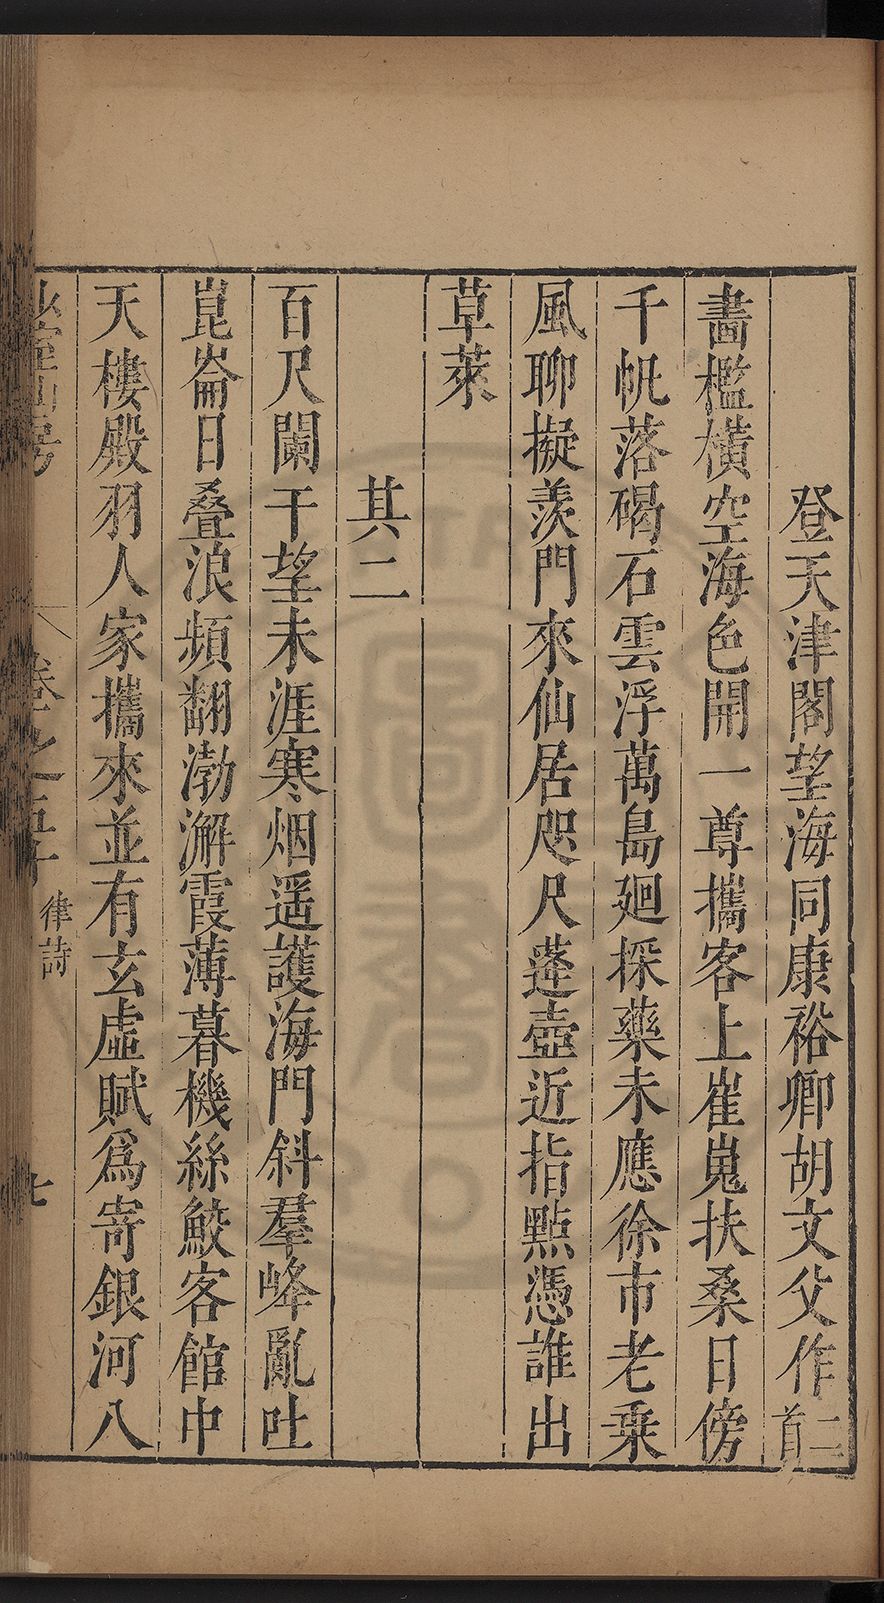 登天津閣望海同康裕卿胡文父作二首
畵檻橫空海色開一尊攜客上崔嵬扶桑日傍
千帆落碣石雲浮萬島廻採藥未應徐市老乗
風聊擬羨門來仙居咫尺蓬壺近指點憑誰出
草萊
其二
百尺闌干望未涯寒烟遥護海門斜羣峰亂吐
崑崙日叠浪頻翻渤澥霞薄暮機絲鮫客館中
天樓殿羽人家攜來並有玄虛賦爲寄銀河八
卷之五十 律詩 七